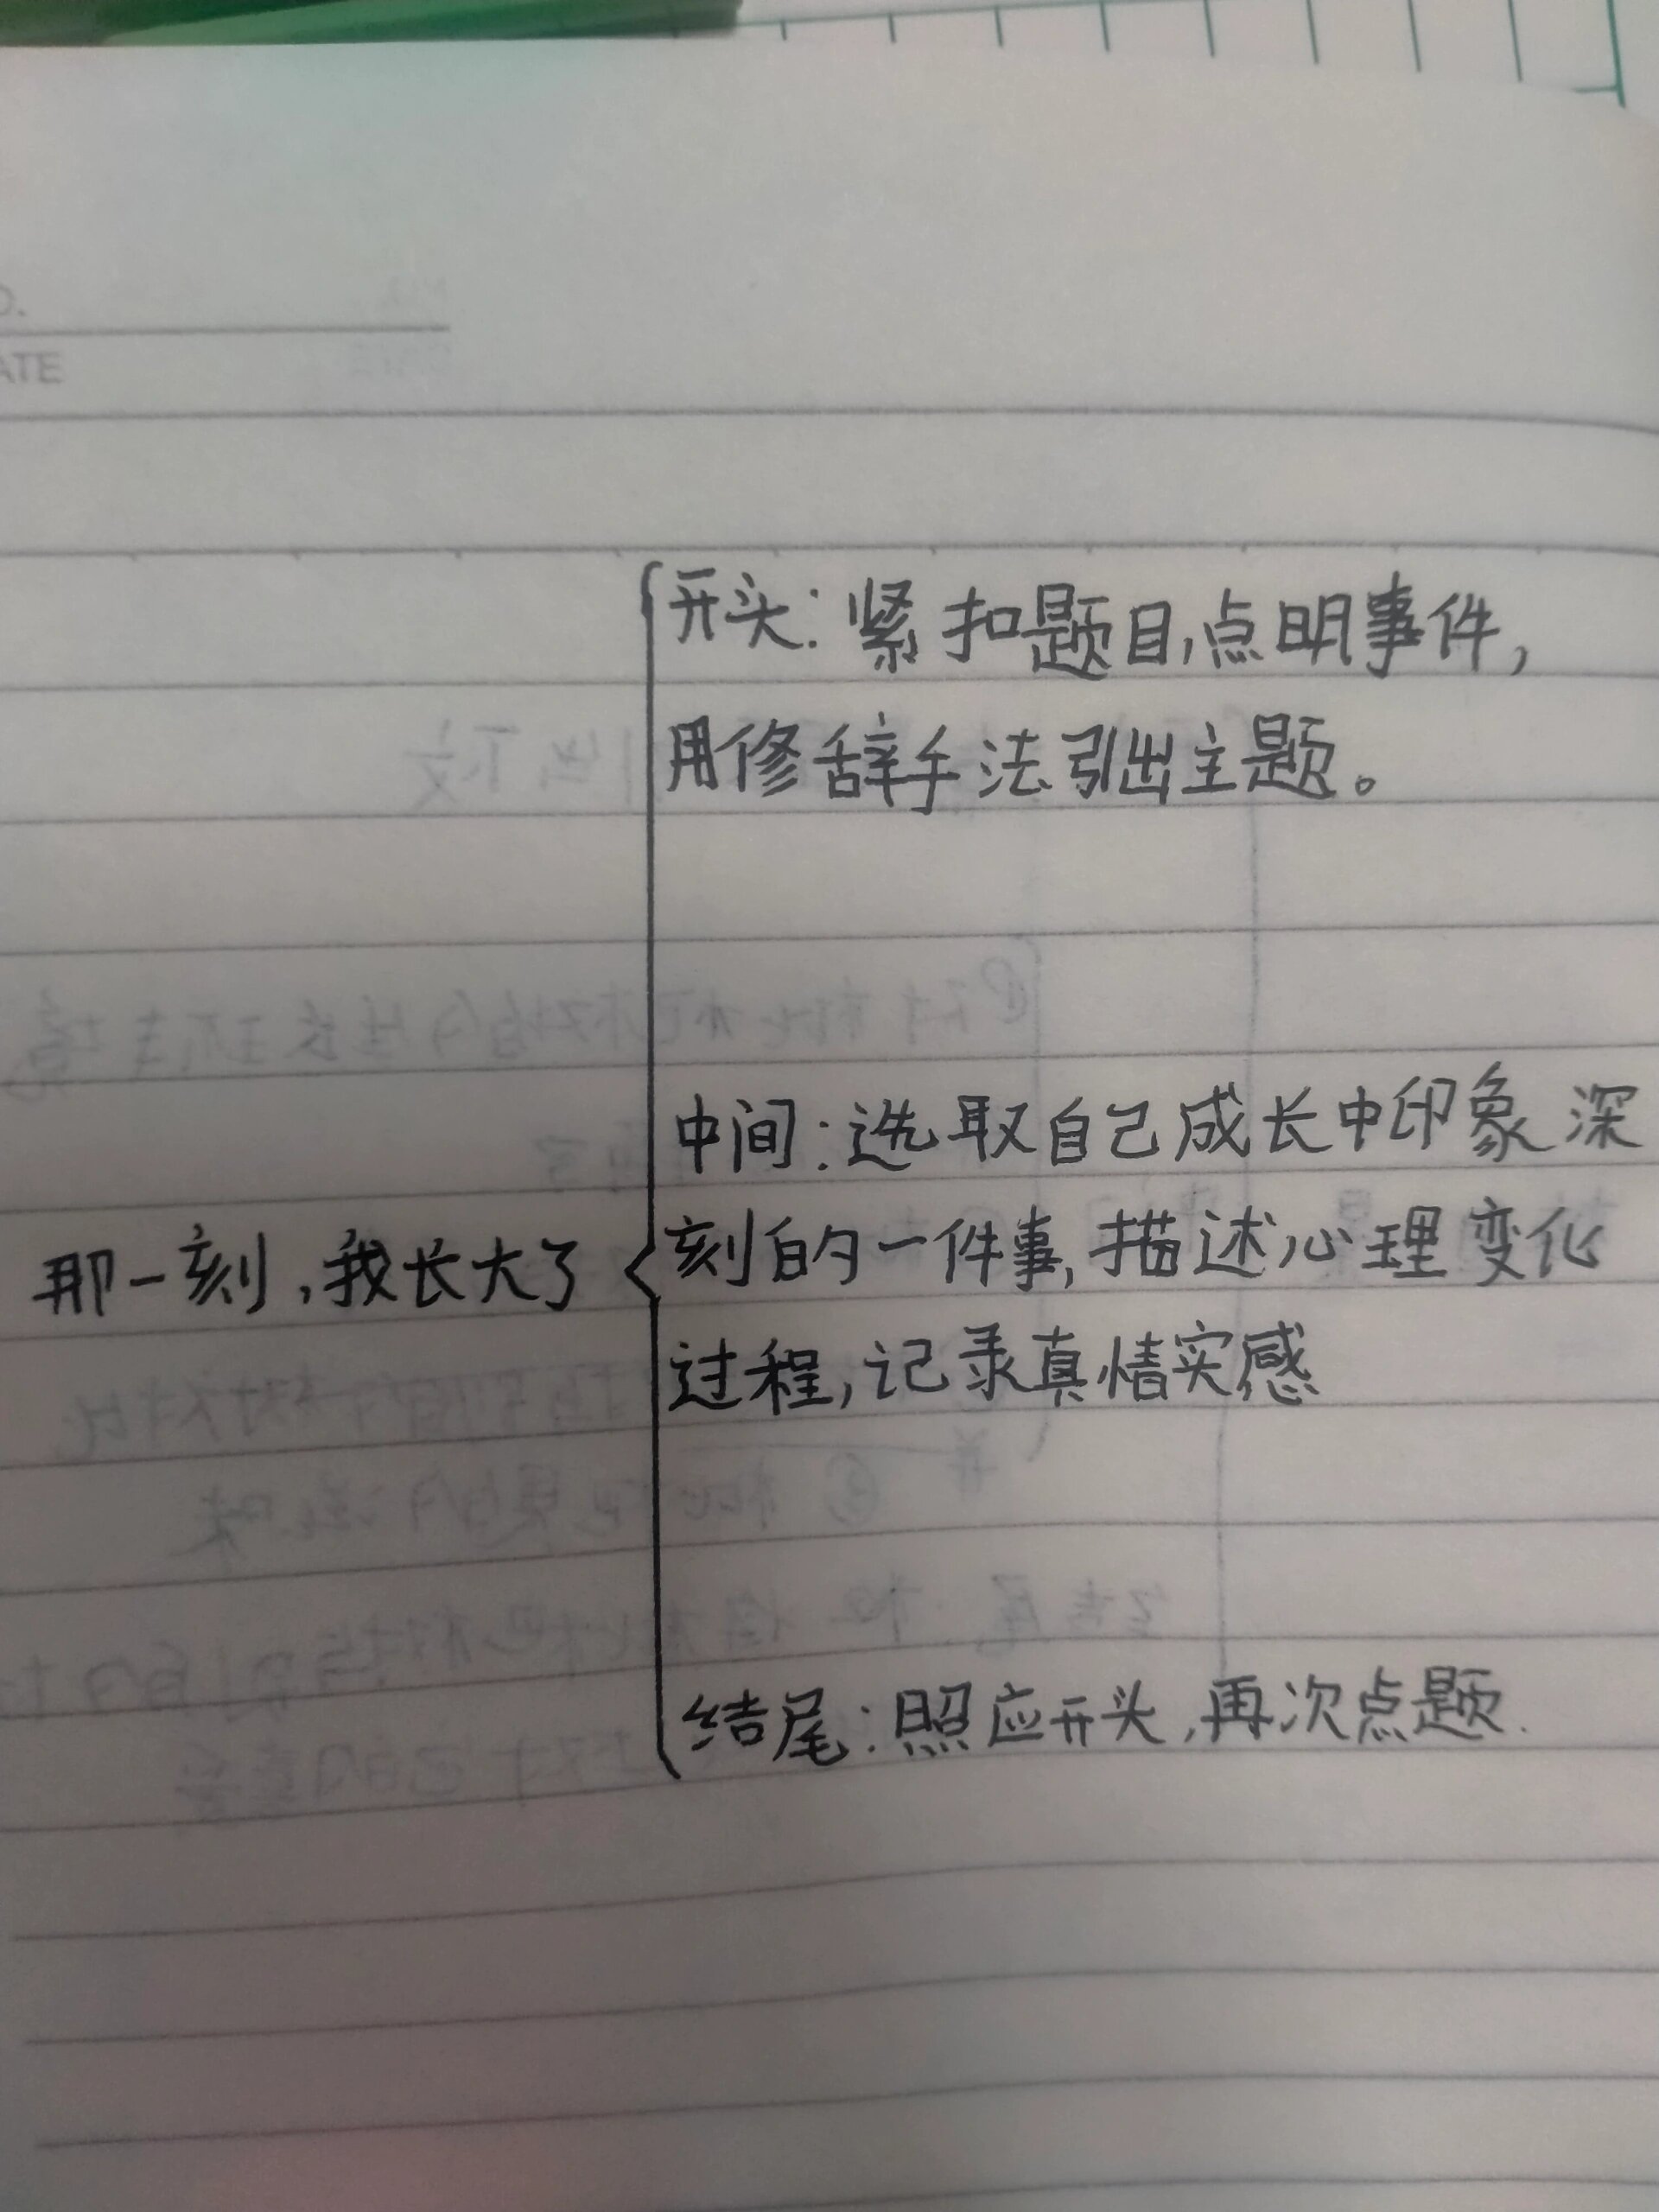 ATE
开头：紧扣题目，点明事件，
用修辞手法引出主题。
中间：选取自己成长中印象深
那一刻，我长大了
刻的一件事，描述心理变化
过程，记录真情实感
结尾：照应开头，再次点题.